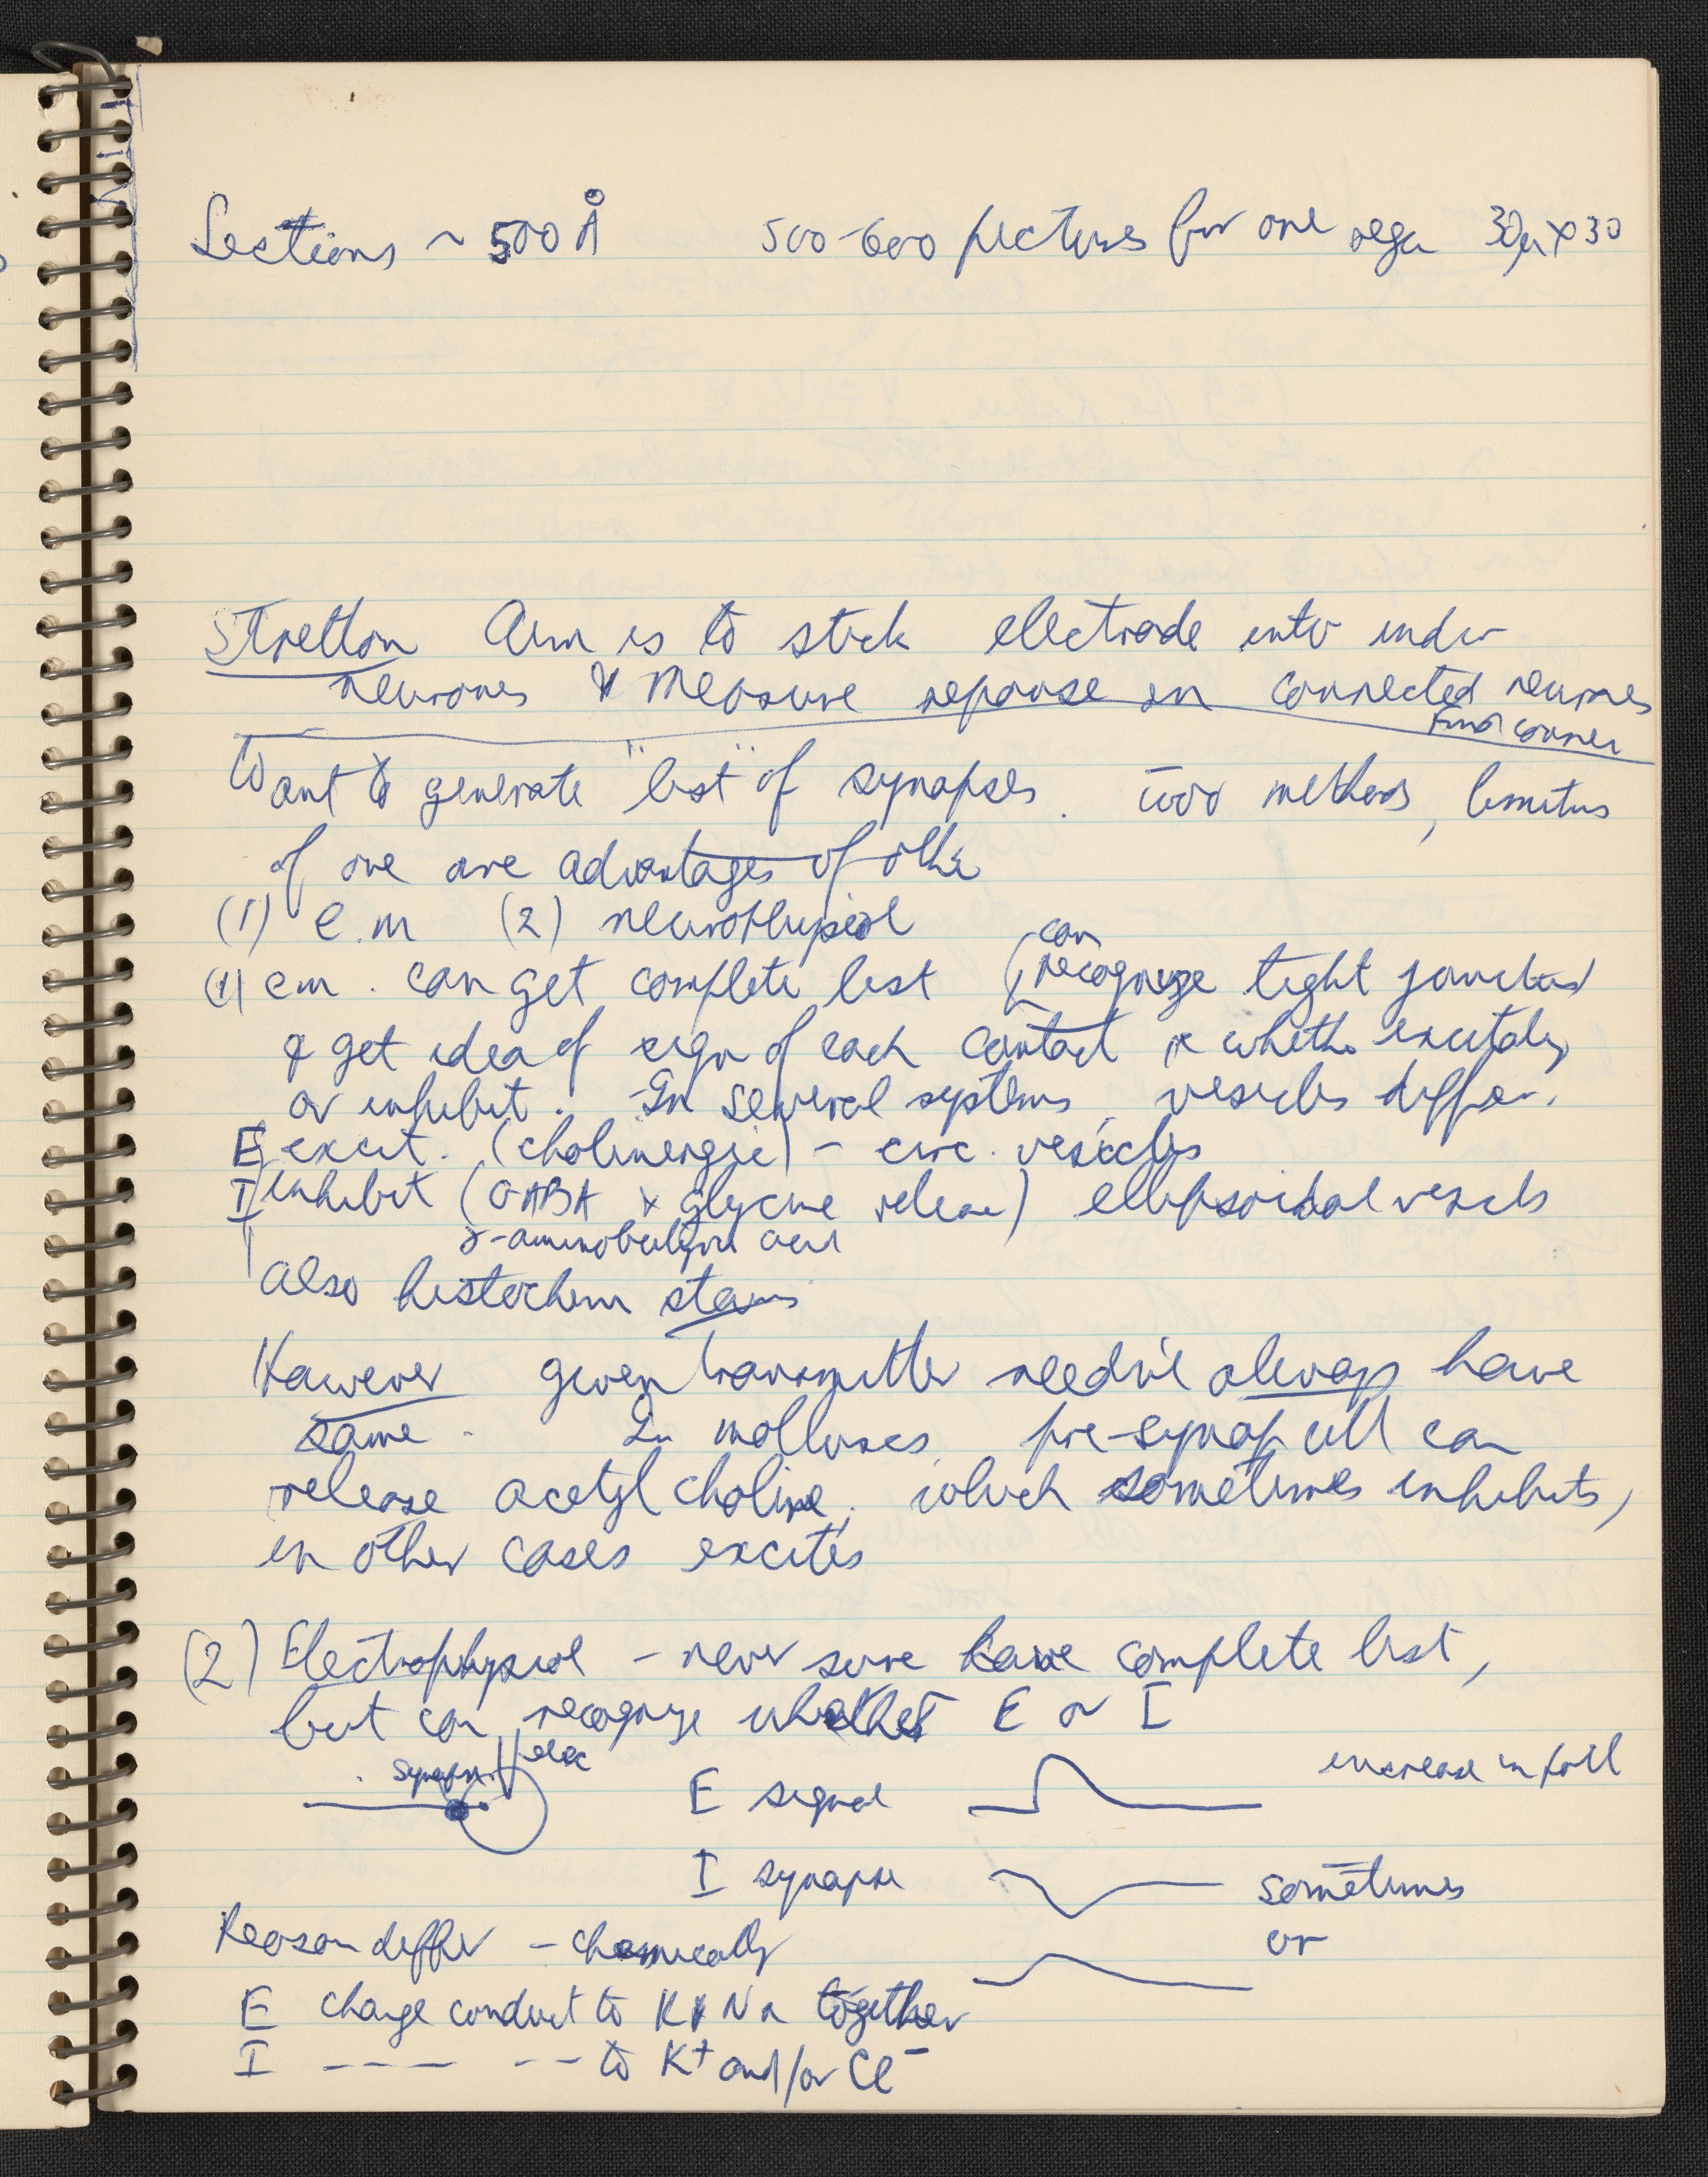 Sections ~ 500 Å 500-600 pictures for one 30μ × 30
Stretton Aim is to stick electrode into indiv
neurones & measure reponse in connected neurones
Find connec
Want to generate "list" of synapses. two methods,
of one are advantages of other
(1) e.m (2) neurophysiol
(1) em. can get complete list (can
recognize tight junction
& get idea of sign of each contact whether excitatory
or inhibit. In several systems vesicles differ.
E excit. (cholinergic) - circ. vesicles
I inhibit (GABA & glycine release) ellipsoidal vesicls
γ-aminobutyric acid
also histochem stains
However given transmitter needn't always have
same. In molluscs pre-synap cell can
release acetyl choline, which sometimes inhibits,
in other cases excites
(2) Electrophysiol - never sure have complete list,
but can recognize whether E or I
synapse elec
E signal increase in pot
I synapse sometimes
or
Reason differ - chemically
E change conduct to K & Na together
I --- -- to K+ and/or Cl-